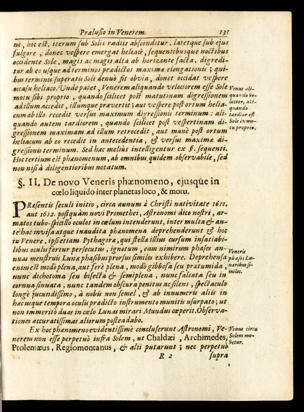 Prælusio in Venerem. 131
ni, hoc est, iterum sub Solis radiis absconditur, latetque sub ejus
fulgore, donec vespere emergat heliacè, sequentibusque noctibus
occidente Sole, magis ac magis alta ab horizonte facta, digredi-
tur ab eo usque ad terminos prædictos maxima elongationis; qui-
bus terminis superatis Soli denuò fit obvia, donec occidat vespere
occasu heliaco. Unde patet, Venerem aliquando velociorem esse Sole
motu sibi proprio, quando scilicet post matutinam digressionem
ad illum accedit, illumque prævertit; aut vespere post ortum helia-
cum ab illo recedit versus maximum digressionis terminum: ali-
quando autem tardiorem, quando scilicet post vespertinam di-
gressionem maximam ad illum retrocedit, aut manè post ortum
heliacum ab eo recedit in antecedentia, & versus maxima di-
gressionis terminum. Sed hæc meliùs intelligentur ex §. sequenti.
Hoc tertium est phænomenum, ab omnibus quidem observabile, sed
non nisi à diligentioribus notatum.
Venus ali-
quando ve-
locior, ali-
quando
tardior est
Sole in mo-
tu proprio.
§. II. De novo Veneris phænomeno, ejusque in
cœlo liquido inter planetas loco, & motu.
PRæsentis seculi initio, circa annum à Christi nativitate 1611,
aut 1612. postquàm novi Promethei, Astronomi dico nostri, ar-
matos tubo-optico oculos in cœlum intenderunt, inter multa & an-
tehac invisa atque inaudita phænomena deprehenderunt & hoc
in Venere, ipsi etiam Pythagoræ, qui stella illius cursum infatiabi-
libus oculis fertur prosecutus, ignotum, eam nimirum phases an-
nuas menstruis Lunæ phasibus prorsus similes exhibere. Deprehensa
enim est modò plena, aut ferè plena, modò gibbosa, seu præturnida,
nunc dichotoma seu bisecta & semiplena, nunc falcata seu in
cornua sinuata, nunc tandem obscura penitus ac silens; spectaculo
longè jucundissimo, à nobis non semel, & ab innumeris aliis in
hac usque tempora oculis prædicto instrumento munitis usurpato; ut
non immeritò duas in cœlo Lunas mirari Mundus cœperit. Observa-
tionem accuratissimas aliorum postea dabo.
Veneris
phases Lu-
naribus si-
miles.
Ex hoc phænomeno evidentissimè concluserunt Astronomi, Ve-
nerem non esse perpetuò infra Solem, ut Chaldæi, Archimedes,
Ptolemæus, Regiomontanus, & alii putarunt; nec perpetuò
Venus circa
Solem mo-
vetur.
R 2 supra